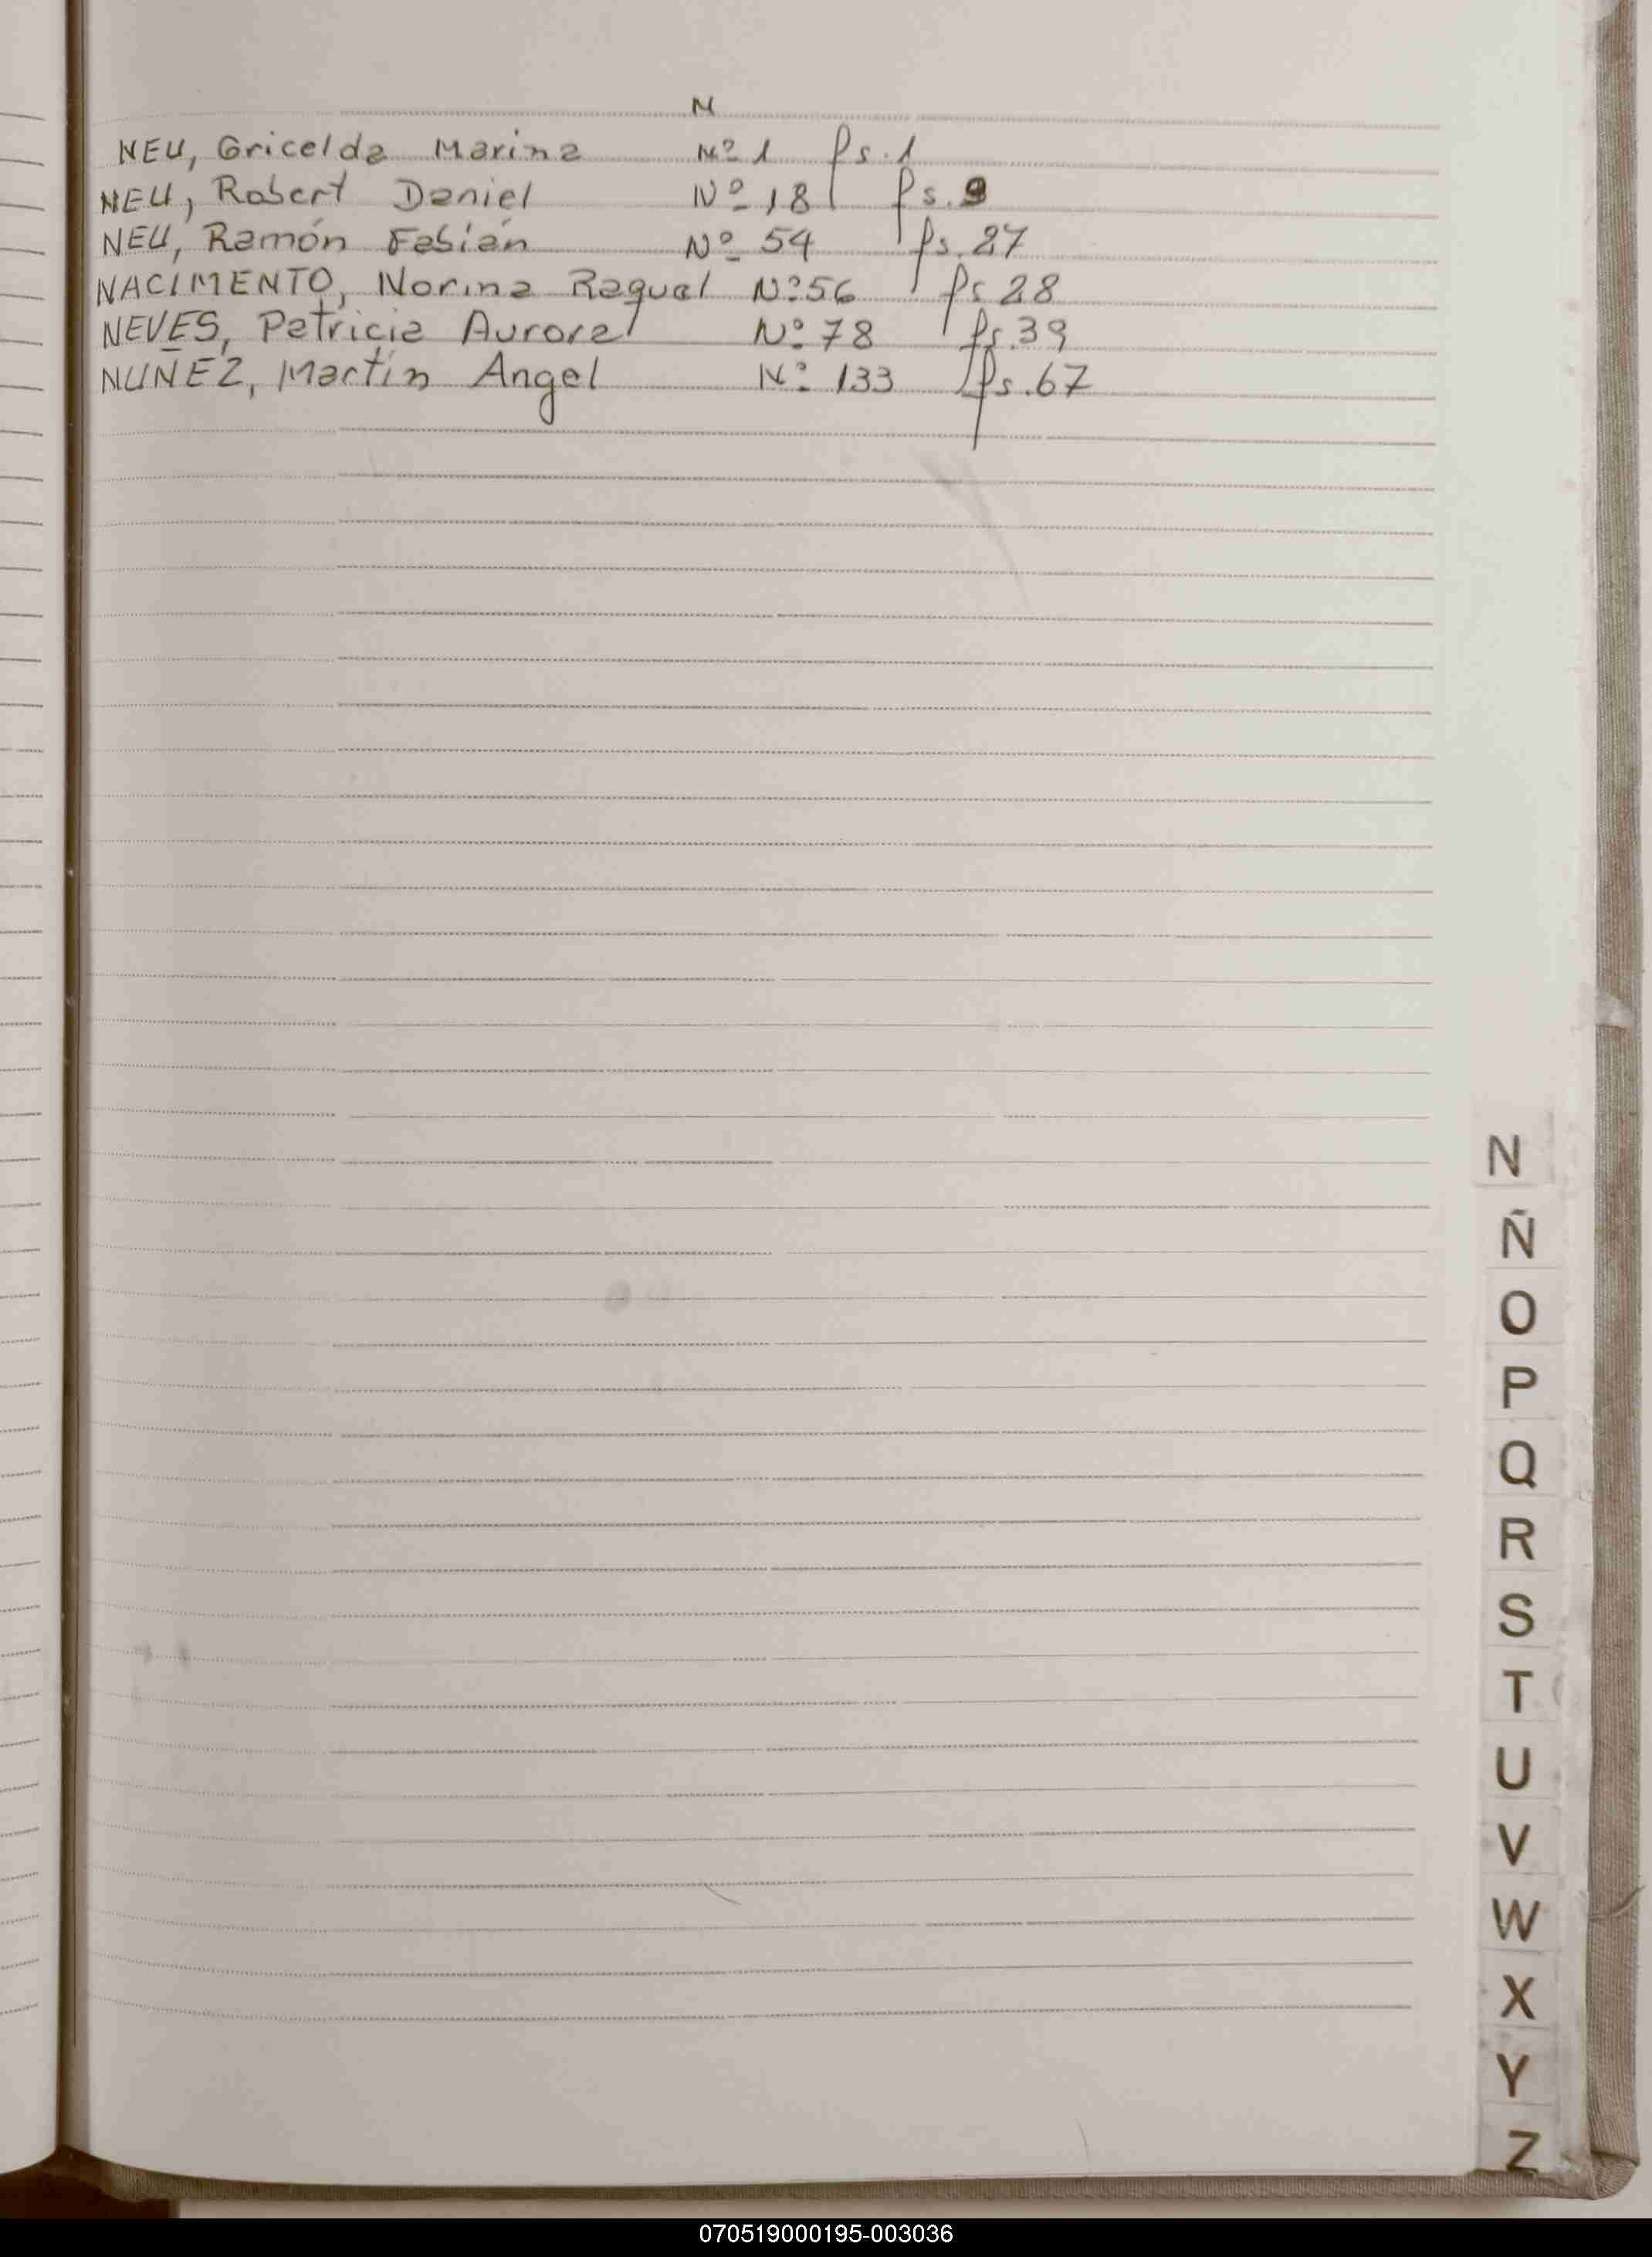 N
NEU, Gricelda Marina Nº 1 fs. 1
NEU, Robert Daniel Nº 18 fs. 9
NEU, Ramón Fabián Nº 54 fs. 27
NACIMENTO, Norina Raquel Nº 56 fs 28
NEVES, Patricia Aurora Nº 78 fs. 39
NUÑEZ, Martín Angel Nº 133 fs. 67
N
Ñ
O
P
Q
R
S
T
U
V
W
X
Y
Z
070519000195-003036